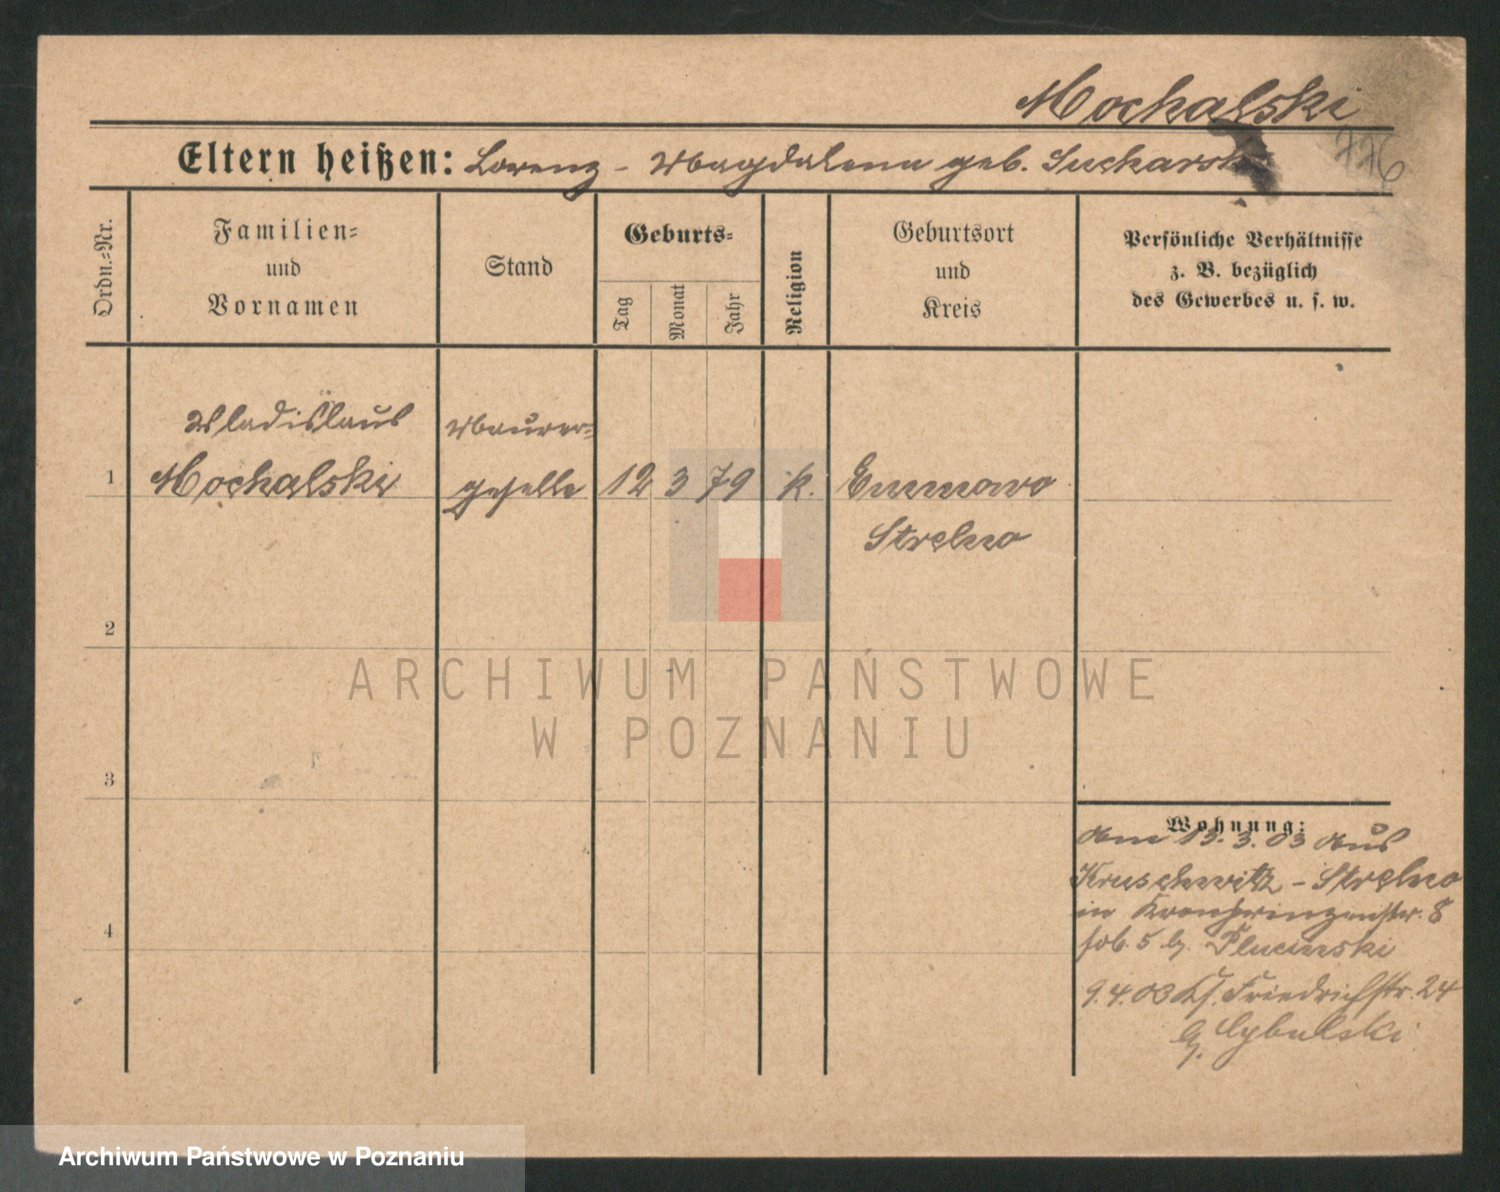 Mochalski
776
Eltern heißen: Lorenz - Magdalena geb. Sucharska
Ordn.-Nr.
Familien-
und
Vornamen
Stand
Geburts-
Tag
Monat
Jahr
Religion
Geburtsort
und
Kreis
Persönliche Verhältnisse
z. B. bezüglich
des Gewerbes u. s. w.
Wladislaus Maurer-
1 Mochalski geselle 12 3 79 k.
Strelno
2
3
4
Wohnung:
am 13. 3. 03 aus
Kruschwitz - Strelno
in Kronprinzenstr. 8
5 b. Plucinski
9.4.03 Friedrichstr. 24
b. Cybulski
ARCHIWUM PAŃSTWOWE
W POZNANIU
Archiwum Państwowe w Poznaniu